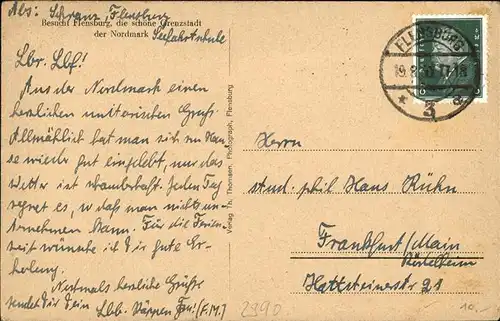 Abs: Schranz, Flensburg
Besucht Flensburg, die schöne Grenzstadt
der Nordmark
Lbr. Lbf!
Aus der Nordmark einen
herzlichen unitarischen Gruß.
Allmählich hat man sich zu Hau
se wieder gut eingelebt, nur das
Wetter ist schauderhaft. Jeden Tag
regnet es, so daß man nichts un-
ternehmen kann. Für die Ferien-
zeit wünsche ich Dir gute Er-
holung.
Nochmals herzliche Grüße
sendet Dir Dein
Lbb.
(F.M.)
Verlag Th. Thomsen, Photograph, Flensburg
FLENSBURG
19.8. 17-18
* 3 a
Herrn
stud. phil Hans Kühn
Frankfurt/Main
Rödelheim
21
2990
10,-